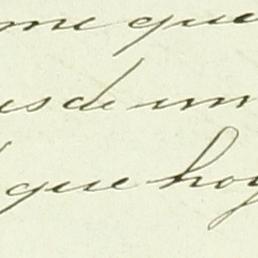 me que
us de un
que hoy